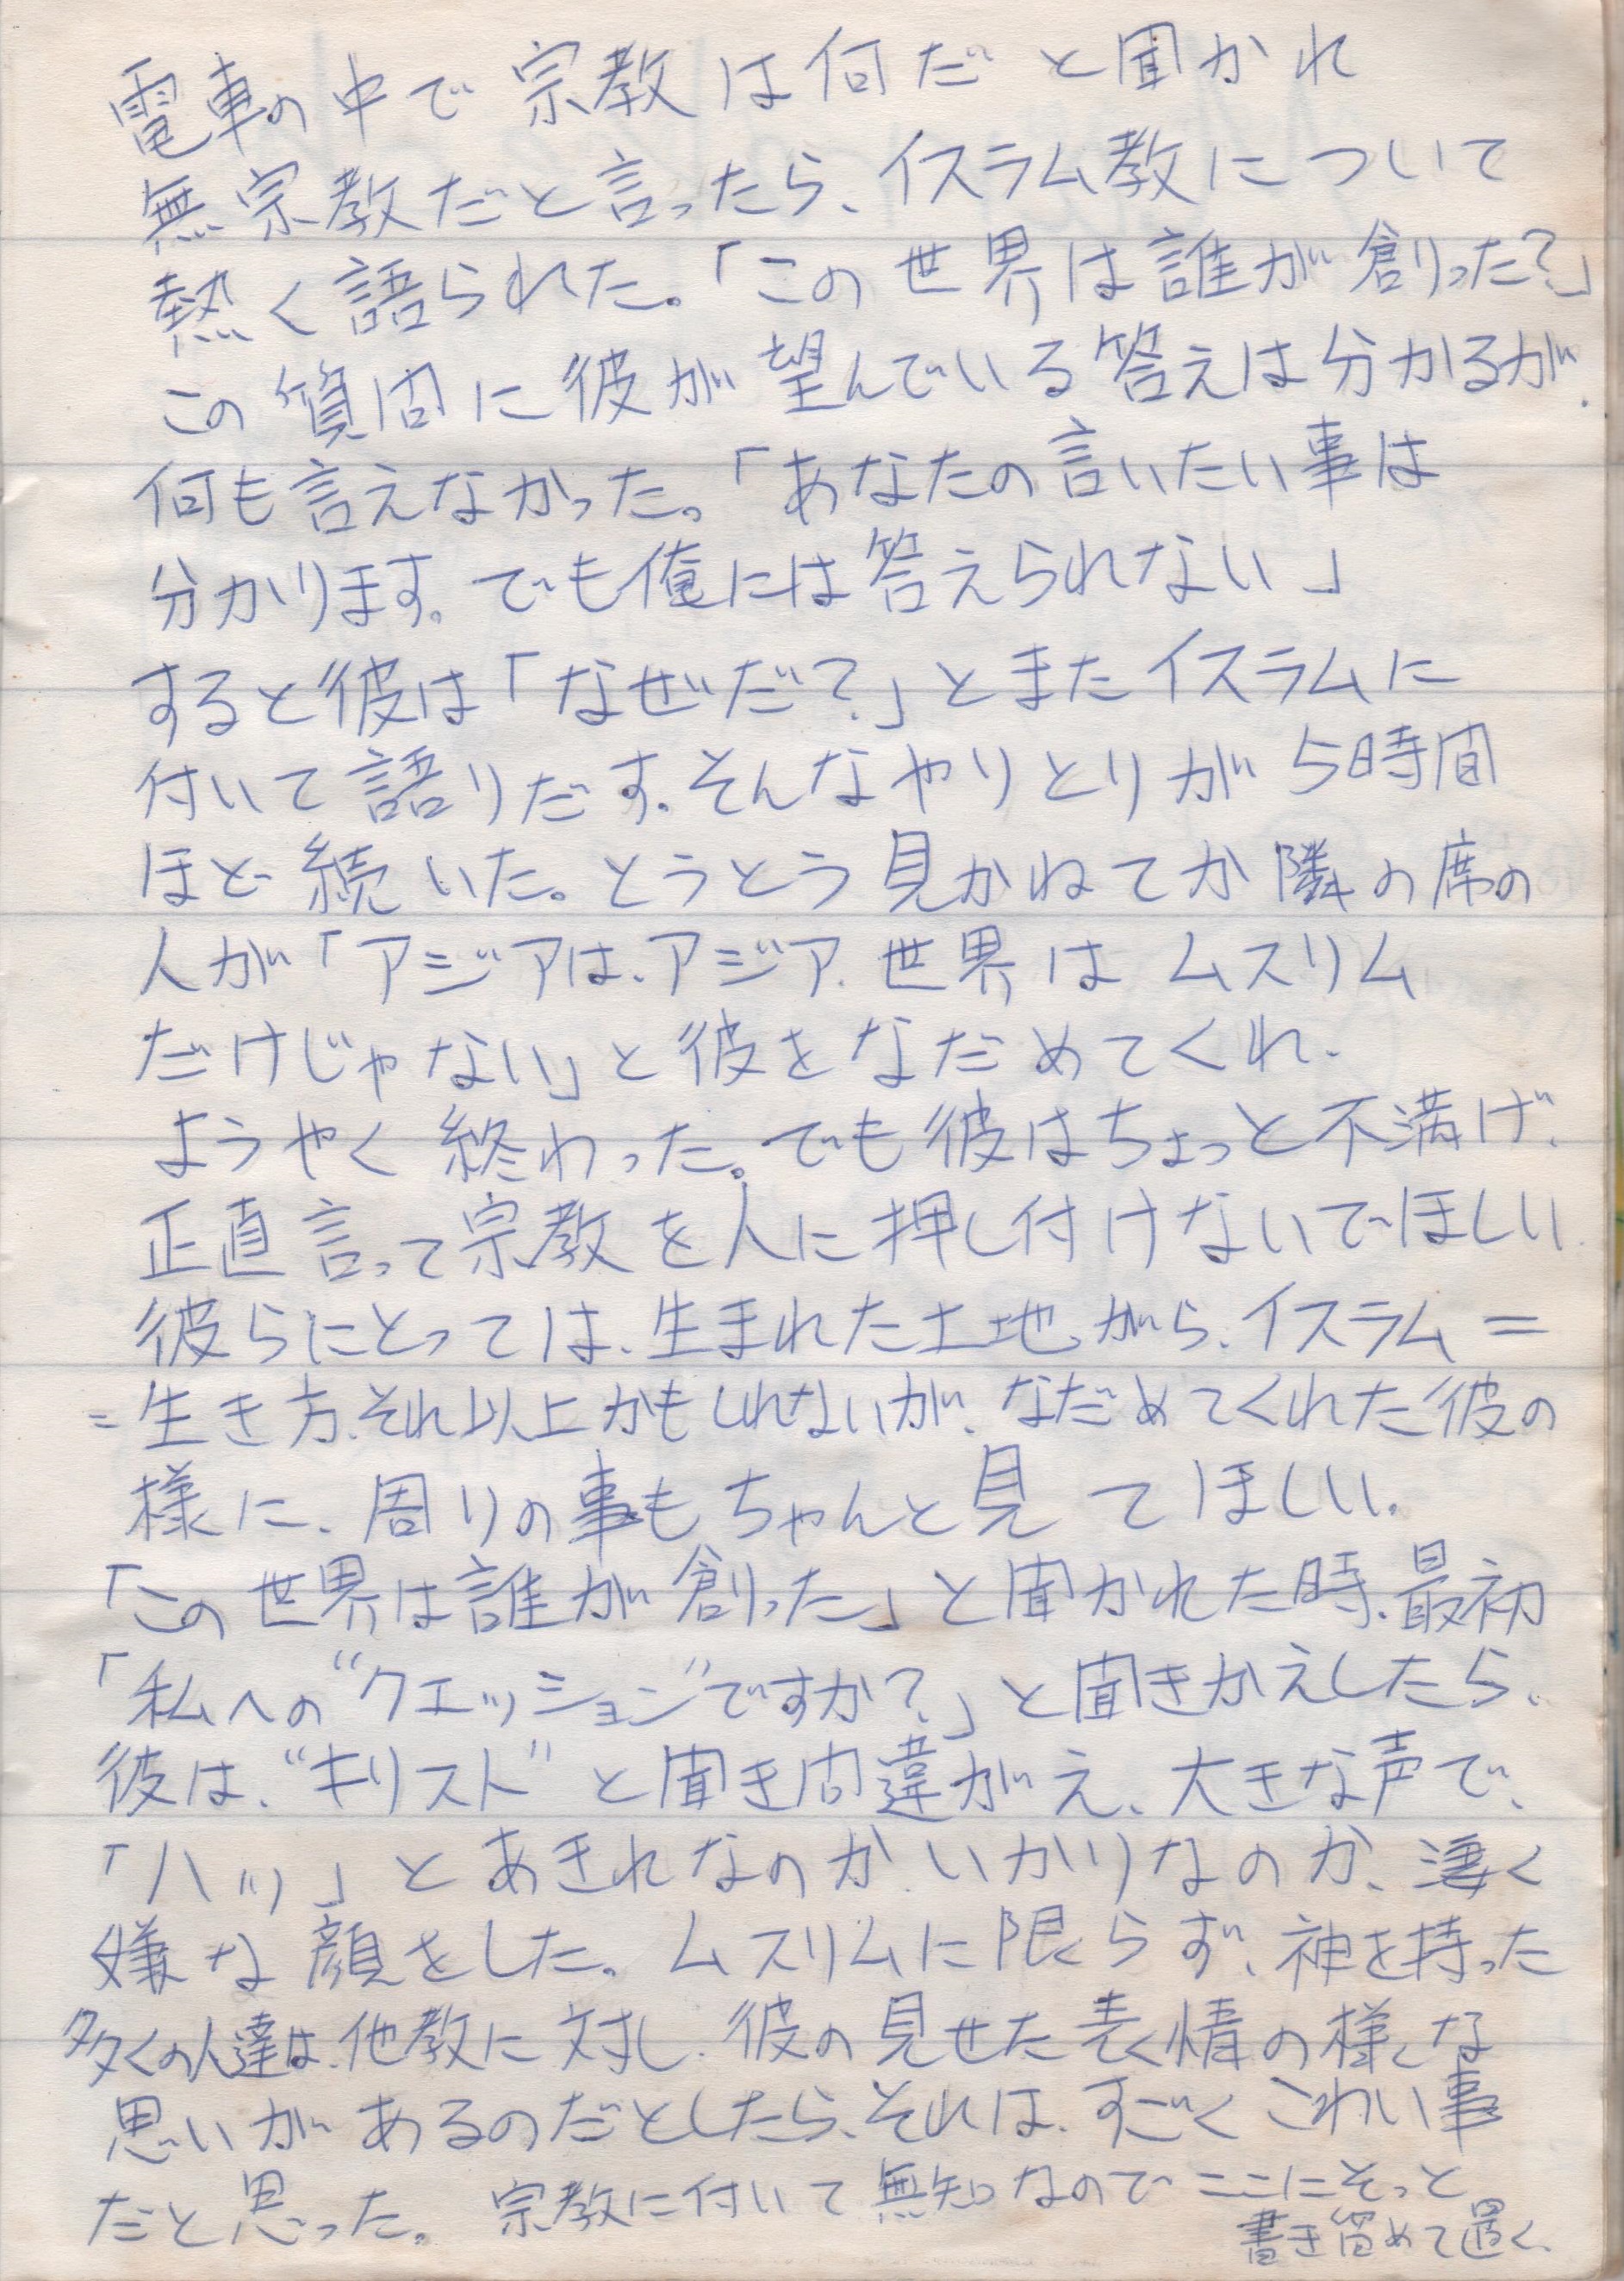 電車の中で宗教は何だと聞かれ
無宗教だと言ったら、イスラム教について
熱く語られた。「この世界は誰が創った?」
この質問に彼が望んでいる答えは分かるが、
何も言えなかった。「あなたの言いたい事は
分かります。でも俺には答えられない」
すると彼は「なぜだ?」とまたイスラムに
付いて語りだす。そんなやりとりが5時間
ほど続いた。とうとう見かねてか隣の席の
人が「アジアは、アジア、世界はムスリム
だけじゃない」と彼をなだめてくれ、
ようやく終わった。でも彼はちょっと不満げ、
正直言って宗教を人に押し付けないでほしい
彼らにとっては、生まれた土地がら、イスラム=
=生き方、それ以上かもしれないが、なだめてくれた彼の
様に、周りの事もちゃんと見てほしい。
「この世界は誰が創った」と聞かれた時、最初
「私への“クエッション”ですか?」と聞きかえしたら、
彼は、“キリスト”と聞き間違がえ、大きな声で、
「ハッ」とあきれなのか、いかりなのか、凄く
嫌な顔をした。ムスリムに限らず、神を持った
多くの人達は、他教に対し、彼の見せた表情の様な
思いがあるのだとしたら、それは、すごくこわい事
だと思った。宗教に付いて無知なのでここにそっと
書き留めて置く、